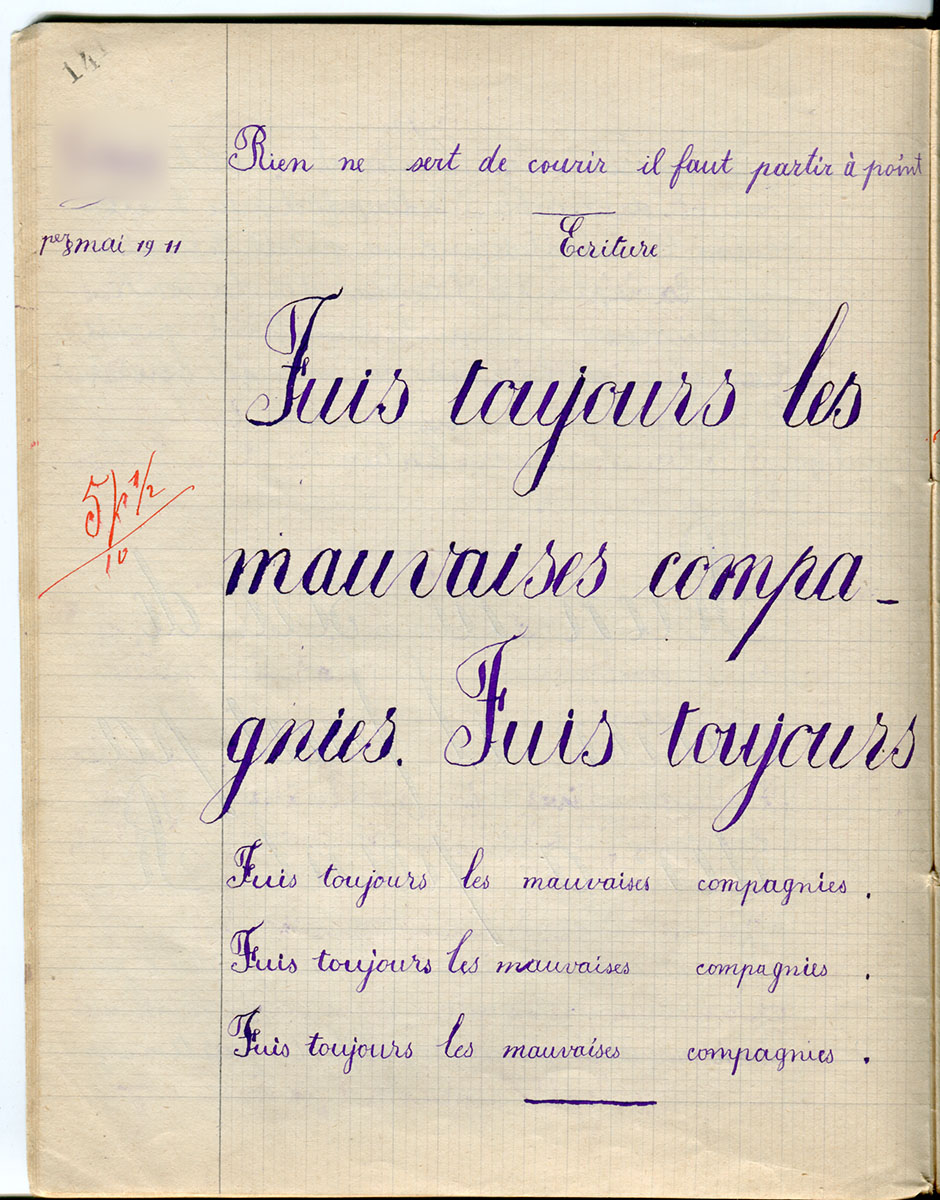 14
Rien ne sert de courir il faut partir à point
Ecriture
1er mai 1911
Fuis toujours les
5 1/2
10
mauvaises compa-
gnies. Fuis toujours
Fuis toujours les mauvaises compagnies.
Fuis toujours les mauvaises compagnies.
Fuis toujours les mauvaises compagnies.